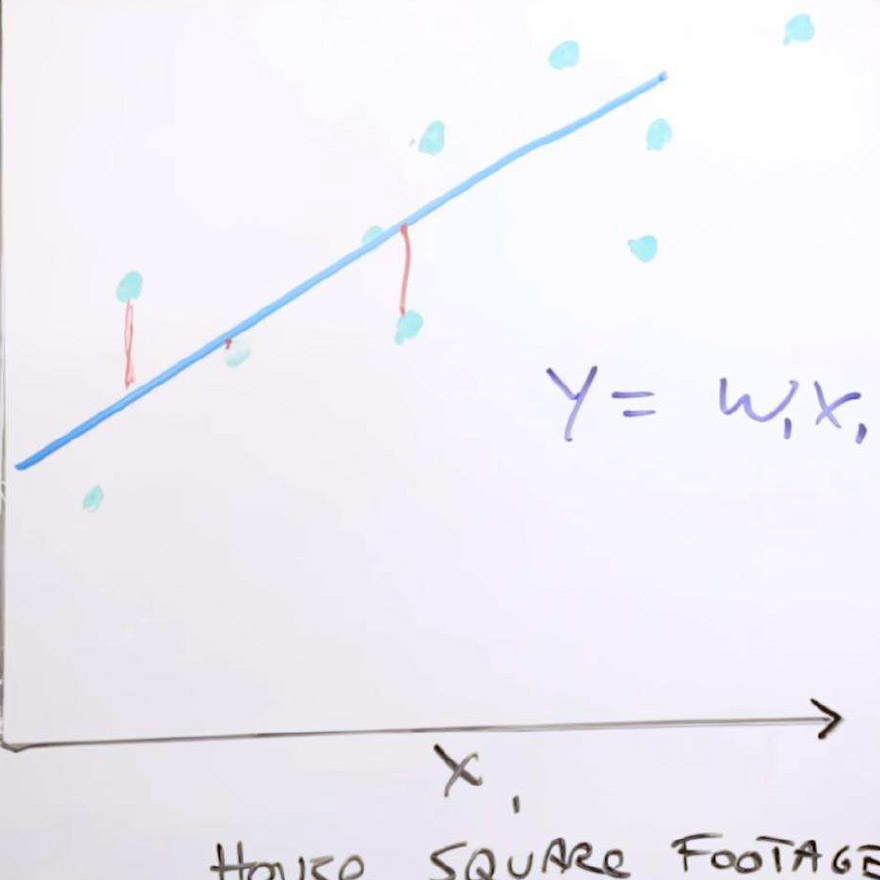 Y = W₁X₁
X₁
HOUSE SQUARE FOOTAGE